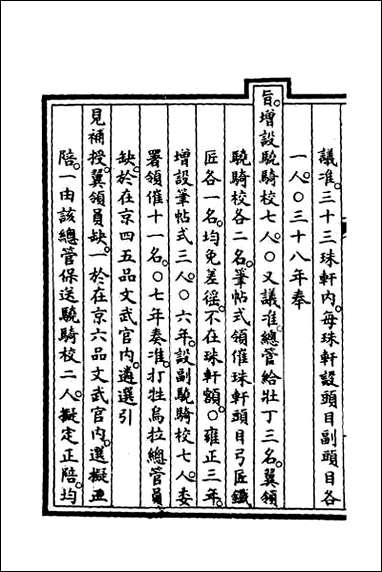 議准。三十三珠軒內。每珠軒設頭目副頭目各
一人。〇三十八年奉
旨。增設驍騎校七人。〇又議准。總管給壯丁三名。翼領
驍騎校各二名。筆帖式領催珠軒頭目弓匠鐵
匠各一名。均免差徭。不在珠軒額。〇雍正三年。
增設筆帖式三人。〇六年。設副驍騎校七人。委
署領催十一名。〇七年奏准。打牲烏拉總管員
缺。於在京四五品文武官內。遴選引
見補授。翼領員缺。一於在京六品文武官內。選擬正
陪。一由該總管保送驍騎校二人。擬定正陪。均